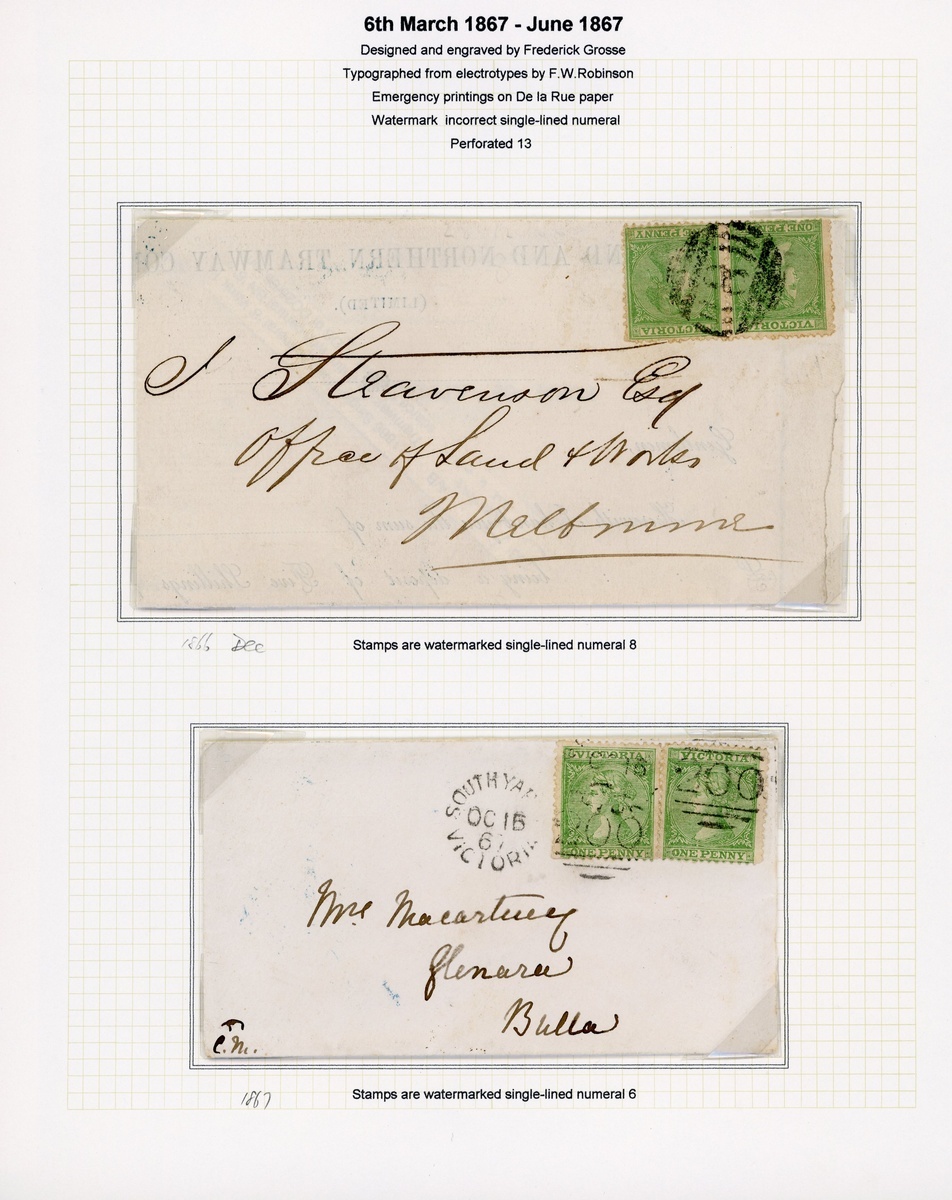 6th March 1867 - June 1867
Designed and engraved by Frederick Grosse
Typographed from electrotypes by F.W.Robinson
Emergency printings on De la Rue paper
Watermark incorrect single-lined numeral
Perforated 13
AND NORTHERN TRAMWAY CO
(LIMITED).
ONE PENNY
VICTORIA
ONE PENNY
VICTORIA
J Steavenson Esq
Office of Land & Works
Melbourne
sum of
being a deposit of Five Shillings
1866 Dec
Stamps are watermarked single-lined numeral 8
VICTORIA
VICTORIA
200
ONE PENNY
ONE PENNY
SOUTH YAR
OC 16
67
VICTORIA
Mrs Macartney
Glenara
Bulla
C.M.
1867
Stamps are watermarked single-lined numeral 6